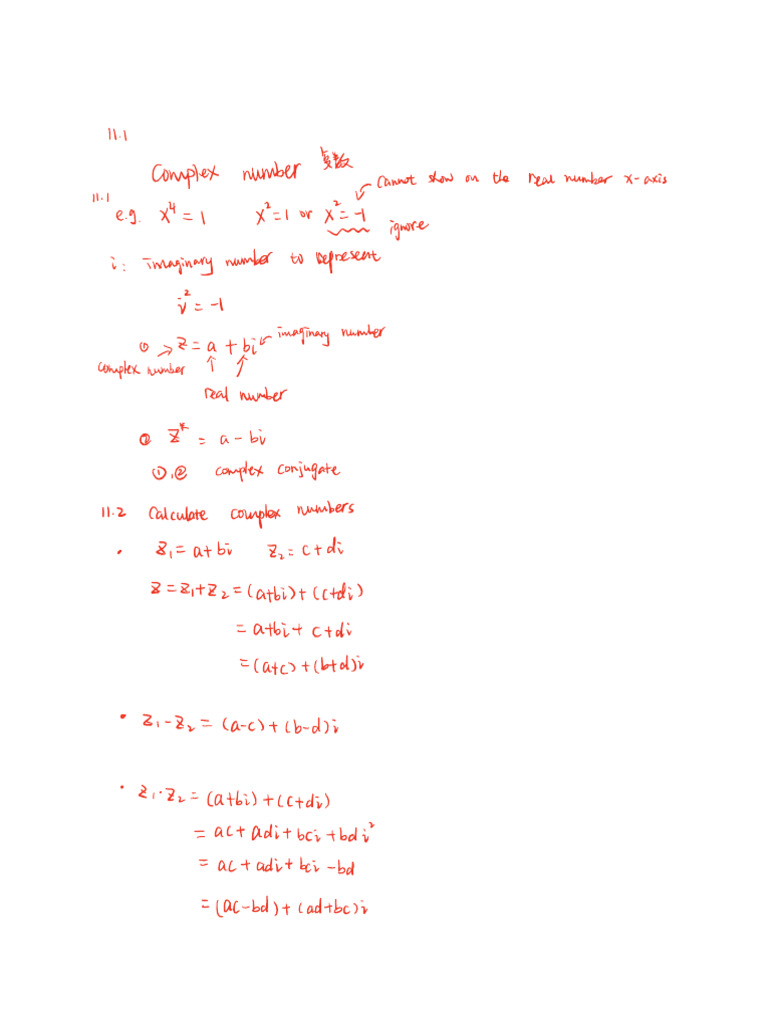 11.1
Complex number 复数
11.1
Cannot show on the real number x-axis
e.g. x⁴ = 1 x² = 1 or x² = -1 ignore
i: imaginary number to represent
i² = -1
① z = a + bi imaginary number
complex number
real number
② z* = a - bi
①,② complex conjugate
11.2 Calculate complex numbers
• z₁ = a+bi z₂ = c+di
z = z₁+z₂ = (a+bi)+(c+di)
= a+bi+ c+di
= (a+c)+(b+d)i
• z₁-z₂ = (a-c)+(b-d)i
• z₁·z₂ = (a+bi)+(c+di)
= ac+adi+bci+bdi²
= ac+adi+bci-bd
= (ac-bd)+(ad+bc)i